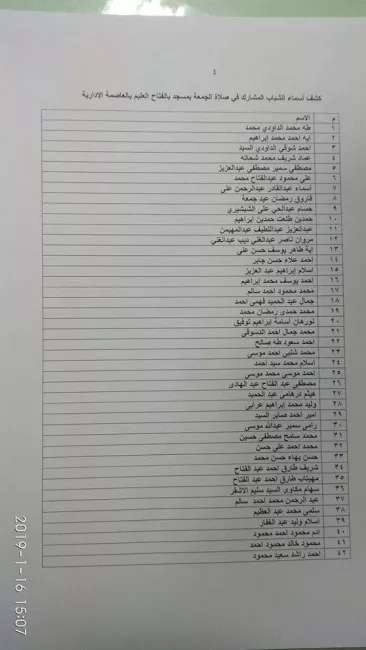 1
كشف أسماء الشباب المشارك في صلاة الجمعة بمسجد بالفتاح العليم بالعاصمة الإدارية
م الاسم
١ طه محمد الداودي محمد
٢ ايه احمد محمد إبراهيم
٣ احمد شوقي الداودي السيد
٤ عماد شريف محمد شحاته
٥ مصطفى سمير مصطفى عبدالعزيز
٦ على محمود عبدالفتاح محمد
٧ أسماء عبدالقادر عبدالرحمن على
٨ فاروق رمضان عيد جمعة
٩ حسام عبدالحي على الشيشيري
١٠ حمدين طلعت حمدين ابراهيم
١١ عبدالعزيز عبداللطيف عبدالمهيمن
١٢ مروان ناصر عبدالغني ديب عبدالغني
١٣ آية طاهر يوسف حسن على
١٤ احمد علاء حسن جابر
١٥ اسلام إبراهيم عبد العزيز
١٦ احمد يوسف محمد إبراهيم
١٧ محمد محمود احمد سالم
١٨ جمال عبد الحميد فهمى احمد
١٩ محمد حمدى رمضان محمد
٢٠ نورهان أسامة إبراهيم توفيق
٢١ محمد جمال احمد الدسوقى
٢٢ احمد سعود طه صالح
٢٣ محمد شلبي احمد موسى
٢٤ اسلام محمد سيد احمد
٢٥ احمد موسى محمد موسى
٢٦ مصطفى عبد الفتاح عبد الهادى
٢٧ هيثم درهامي عبد الحميد
٢٨ وليد محمد إبراهيم عرابى
٢٩ امير احمد صابر السيد
٣٠ رامى سمير عبدالله موسى
٣١ محمد سامح مصطفى حسين
٣٢ محمد احمد على حسن
٣٣ حسن بهاء حسن محمد
٣٤ شريف طارق احمد عبد الفتاح
٣٥ مهيتاب طارق احمد عبد الفتاح
٣٦ سهام مكاوى السيد سليم الاشقر
٣٧ عبد الرحمن محمد احمد سالم
٣٨ سلمى محمد عبد العظيم
٣٩ اسلام وليد عبد الغفار
٤٠ ادم محمود احمد محمود
٤١ محمود خالد محمود احمد
٤٢ احمد راشد سعيد محمود
2019-1-16 15:07